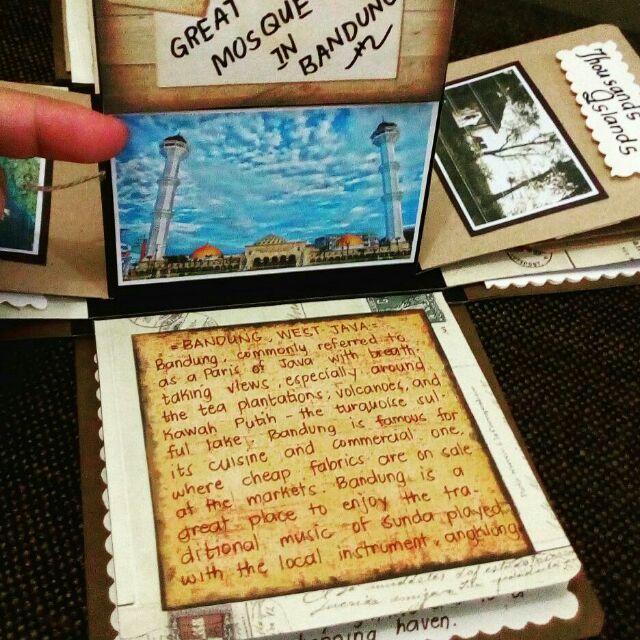 GREAT
MOSQUE
IN
BANDUNG
Thousands
Islands
=BANDUNG, WEST JAVA=
Bandung, commonly referred to
as a Paris of Java with breath-
taking views, especially around
the tea plantations, volcanoes, and
Kawah Putih - the turquoise sul
ful lake. Bandung is famous for
its cuisine and commercial one,
where cheap fabrics are on sale
at the markets. Bandung is a
great place to enjoy the tra-
ditional music of Sunda played
with the local instrument, angklung
haven.